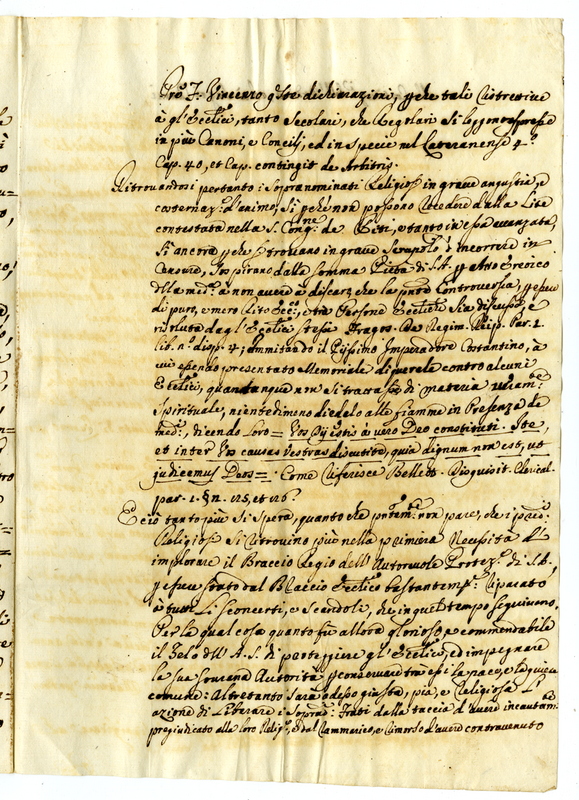 Pro. F. Vincenzo q.ste dichiarazioni, p che tali Costretive
à gl'Ecclici, tanto Secolari, che Regolari si leggono espresse
in più Canoni, e Concilij, ed in specie nel Lateranense 4.
Cap. 40, et Cap. contingit de Arbitris.
Ritrovandosi pertanto i sopranominati Religiosi in grave angustia, e
costernaz: d'animo, Si perché non possono recedere dalla Lite
contestata nella S. Congne de Riti, e tanto in essa avanzata,
Si ancora p che si trovano in grave Scrupolo d'incorrere in
Censure, Sospirano dalla somma Pietà di S.A. p Atto Eroico
della med.a à non avere à discaro che la pnte Controversia, p essere
di puro, e mero Rito Ecc.co, e tra Persone Eccliche sia discussa, e
risoluta dagl'Ecclici stessi Fragos. De Regim. Reip. Par. 1.
lib. n. disp. 4; immitando il Pijssimo Imperadore Costantino, à
cui essendo presentato Memoriale di querele contro alcuni
Ecclici, quandanque non si trattasse di materia meram.e
Spirituale, nientedimeno diedelo alle fiamme in Presenza de
med.i, dicendo Loro = Vos Dij estis à vero Deo constituti. Ite,
et inter Vos causas vestras discutite, quia dignum non est, ut
judicemus Deos = Come riferisce Bellet. Disquisit. Clerical.
par. 1. § n. 125, et 126.
E ciò tanto più si spera, quanto che pntem.e non pare, che i pred.i
Religiosi si trovino più nella primiera Necessità d'
implorare il Braccio Regio dell'Autorevole Protez.e di S.A.
p essere stato dal Braccio Ecclico bastantem.e riparato
à tutti Li sconcerti, e scandoli, che in quel tempo seguivano.
Per la qual cosa quanto fù allora glorioso, e commendabile
il Zelo dell'A.S. di proteggere gl'Ecclici, ed impegnare
la sua sovrana Autorità p conservare tra essi la pace, e la quiete
comune: Altretanto sarà adesso giusta, pia, e Religiosa L'
azione di Liberare i soprad.i Frati dalla taccia d'avere incautam.e
pregiudicato alla loro Relig.e, e dal rammarico, e rimorso d'avere contravenuto